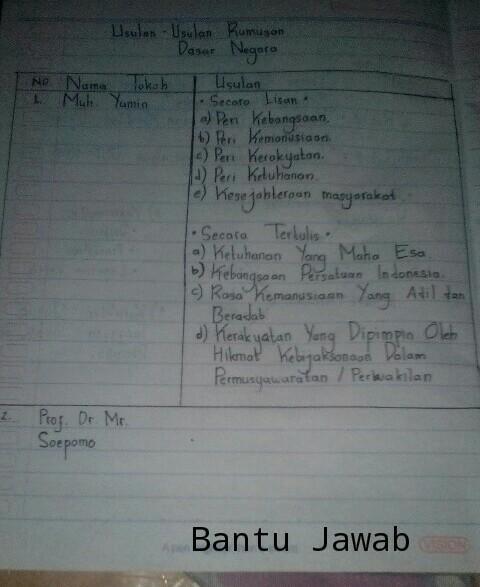 Usulan - Usulan Rumusan
Dasar Negara
No Nama Tokoh Usulan
1. Muh. Yamin • Secara Lisan •
a) Peri Kebangsaan.
b) Peri Kemanusiaan.
c) Peri Kerakyatan.
d) Peri Ketuhanan.
e) Kesejahteraan masyarakat
• Secara Tertulis •
a) Ketuhanan Yang Maha Esa.
b) Kebangsaan Persatuan Indonesia.
c) Rasa Kemanusiaan Yang Adil dan
Beradab
d) Kerakyatan Yang Dipimpin Oleh
Hikmat Kebijaksanaan Dalam
Permusyawaratan / Perwakilan
2. Prof. Dr. Mr.
Soepomo
Bantu Jawab
VISION